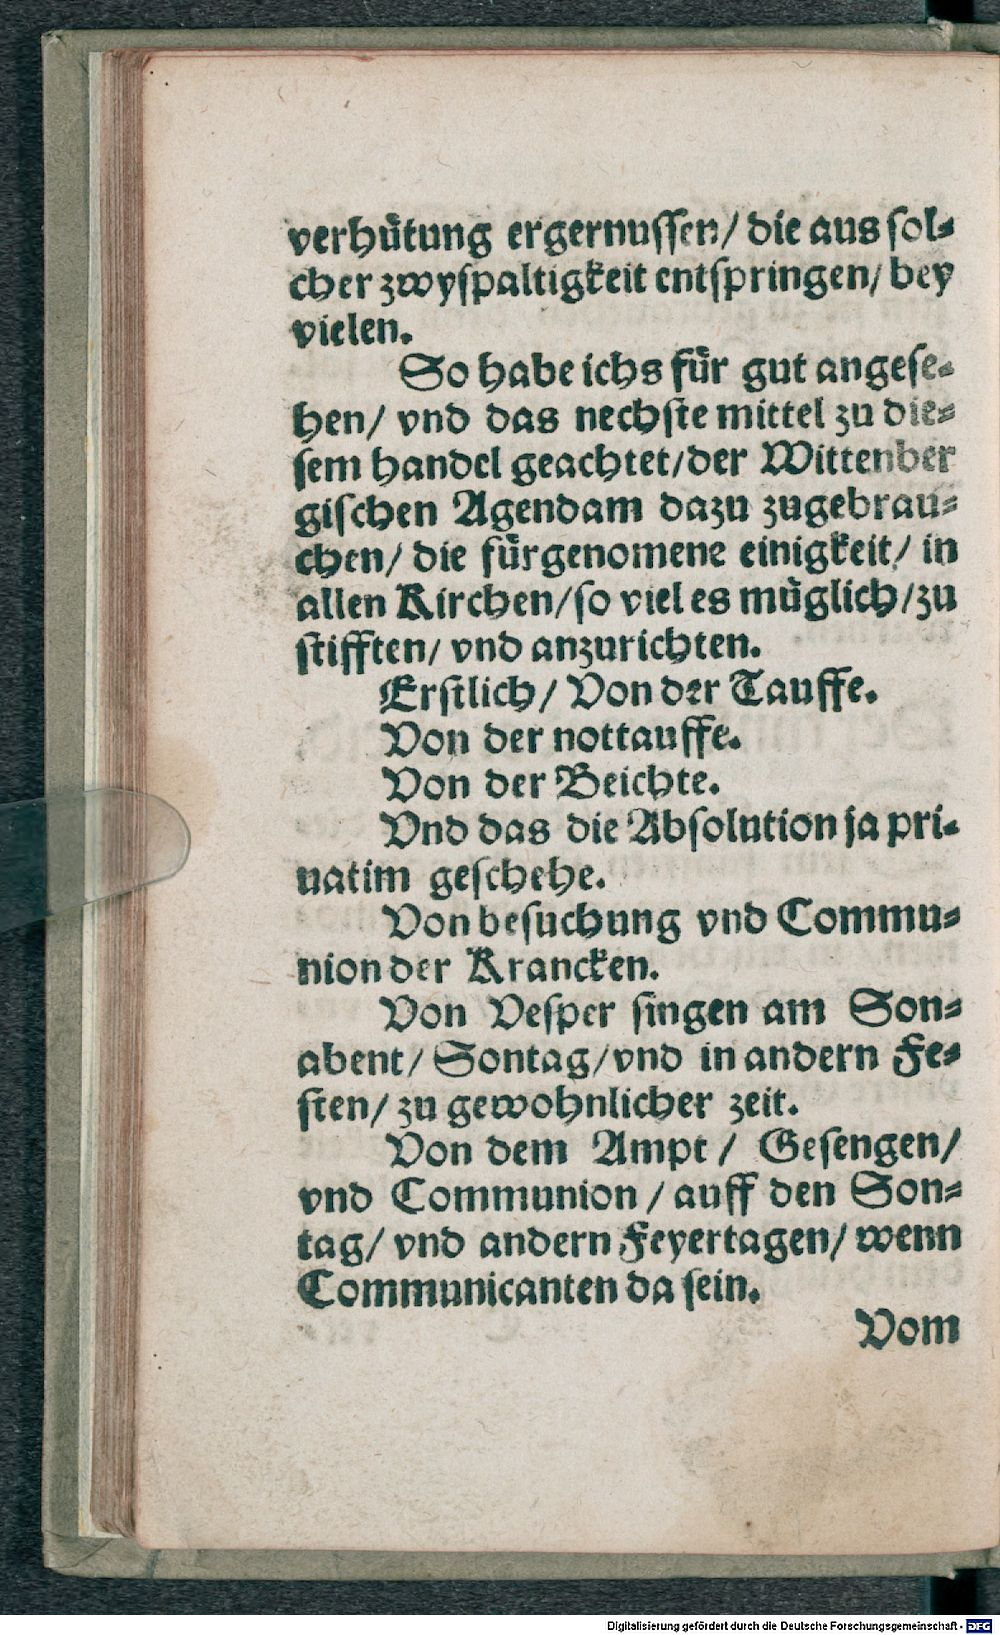 verhuͤtung ergernuſſen/ die aus ſol⸗
cher zwyſpaltigkeit entſpringen/ bey
vielen.
So habe ichs fuͤr gut angeſe⸗
hen/ vnd das nechſte mittel zu die⸗
ſem handel geachtet/der Wittenber
giſchen Agendam dazu zugebrau⸗
chen/ die fuͤrgenomene einigkeit/ in
allen Kirchen/ſo viel es muͤglich/zu
ſtifften/ vnd anzurichten.
Erſtlich/ Von der Tauffe.
Von der nottauffe.
Von der Beichte.
Vnd das die Abſolution ja pri⸗
uatim geſchehe.
Von beſuchung vnd Commu⸗
nion der Krancken.
Von Veſper ſingen am Son⸗
abent/ Sontag/vnd in andern Fe⸗
ſten/ zu gewohnlicher zeit.
Von dem Ampt/ Geſengen/
vnd Communion/ auff den Son⸗
tag/ vnd andern Feyertagen/ wenn
Communicanten da ſein.
Vom
Digitalisierung gefördert durch die Deutsche Forschungsgemeinschaft - DFG